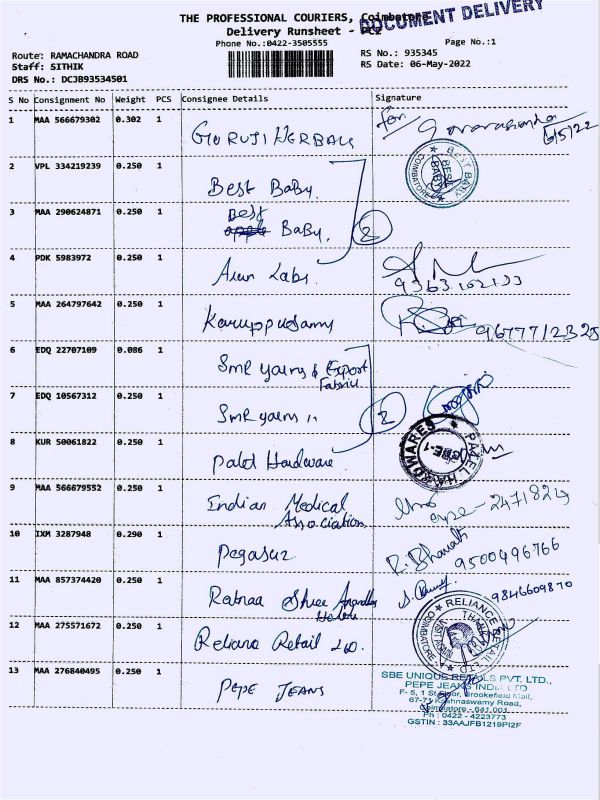 THE PROFESSIONAL COURIERS, Coimbatore
DOCUMENT DELIVERY
Delivery Runsheet - PC2
Phone No.:0422-3505555
Page No.:1
Route: RAMACHANDRA ROAD
RS No.: 935345
Staff: SITHIK
RS Date: 06-May-2022
DRS No.: DCJB93534501
S No Consignment No Weight PCS Consignee Details Signature
1 MAA 566679302 0.302 1 GURUJI HERBALS for
6/5/22
2 VPL 334219239 0.250 1 Best Baby. BEST BABY COIMBATORE
3 MAA 290624871 0.250 1 Best Baby. 2
4 PDK 5983972 0.250 1 Arun Labs.
9363162133
5 MAA 264797642 0.250 1 Karuppusamy 9677712325
6 EDQ 22707109 0.086 1 SMR yarns & Export
Fabric
7 EDQ 10567312 0.250 1 SMR yarns 11 2
8 KUR 50061822 0.250 1 Patel Hardware PATEL HARDWARES CBE-1
9 MAA 566679552 0.250 1 Indian Medical
Association
10 IXM 3287948 0.290 1 Pegasuz R. Bharath 9500496766
11 MAA 857374420 0.250 1 Ratnaa Shree 9846609870
12 MAA 275571672 0.250 1 Reliance Retail Ltd. RELIANCE RETAIL LTD COIMBATORE THANK VISIT AGAIN
13 MAA 276840495 0.250 1 PEPE JEANS
SBE UNIQUE RETAILS PVT. LTD.,
PEPE JEANS INDIA LTD
F- 5, 1 St Floor, Brookefield Mall,
67-71 Krishnaswamy Road,
Coimbatore - 641 001.
Ph : 0422 - 4223773
GSTIN : 33AAJFB1219PI2F